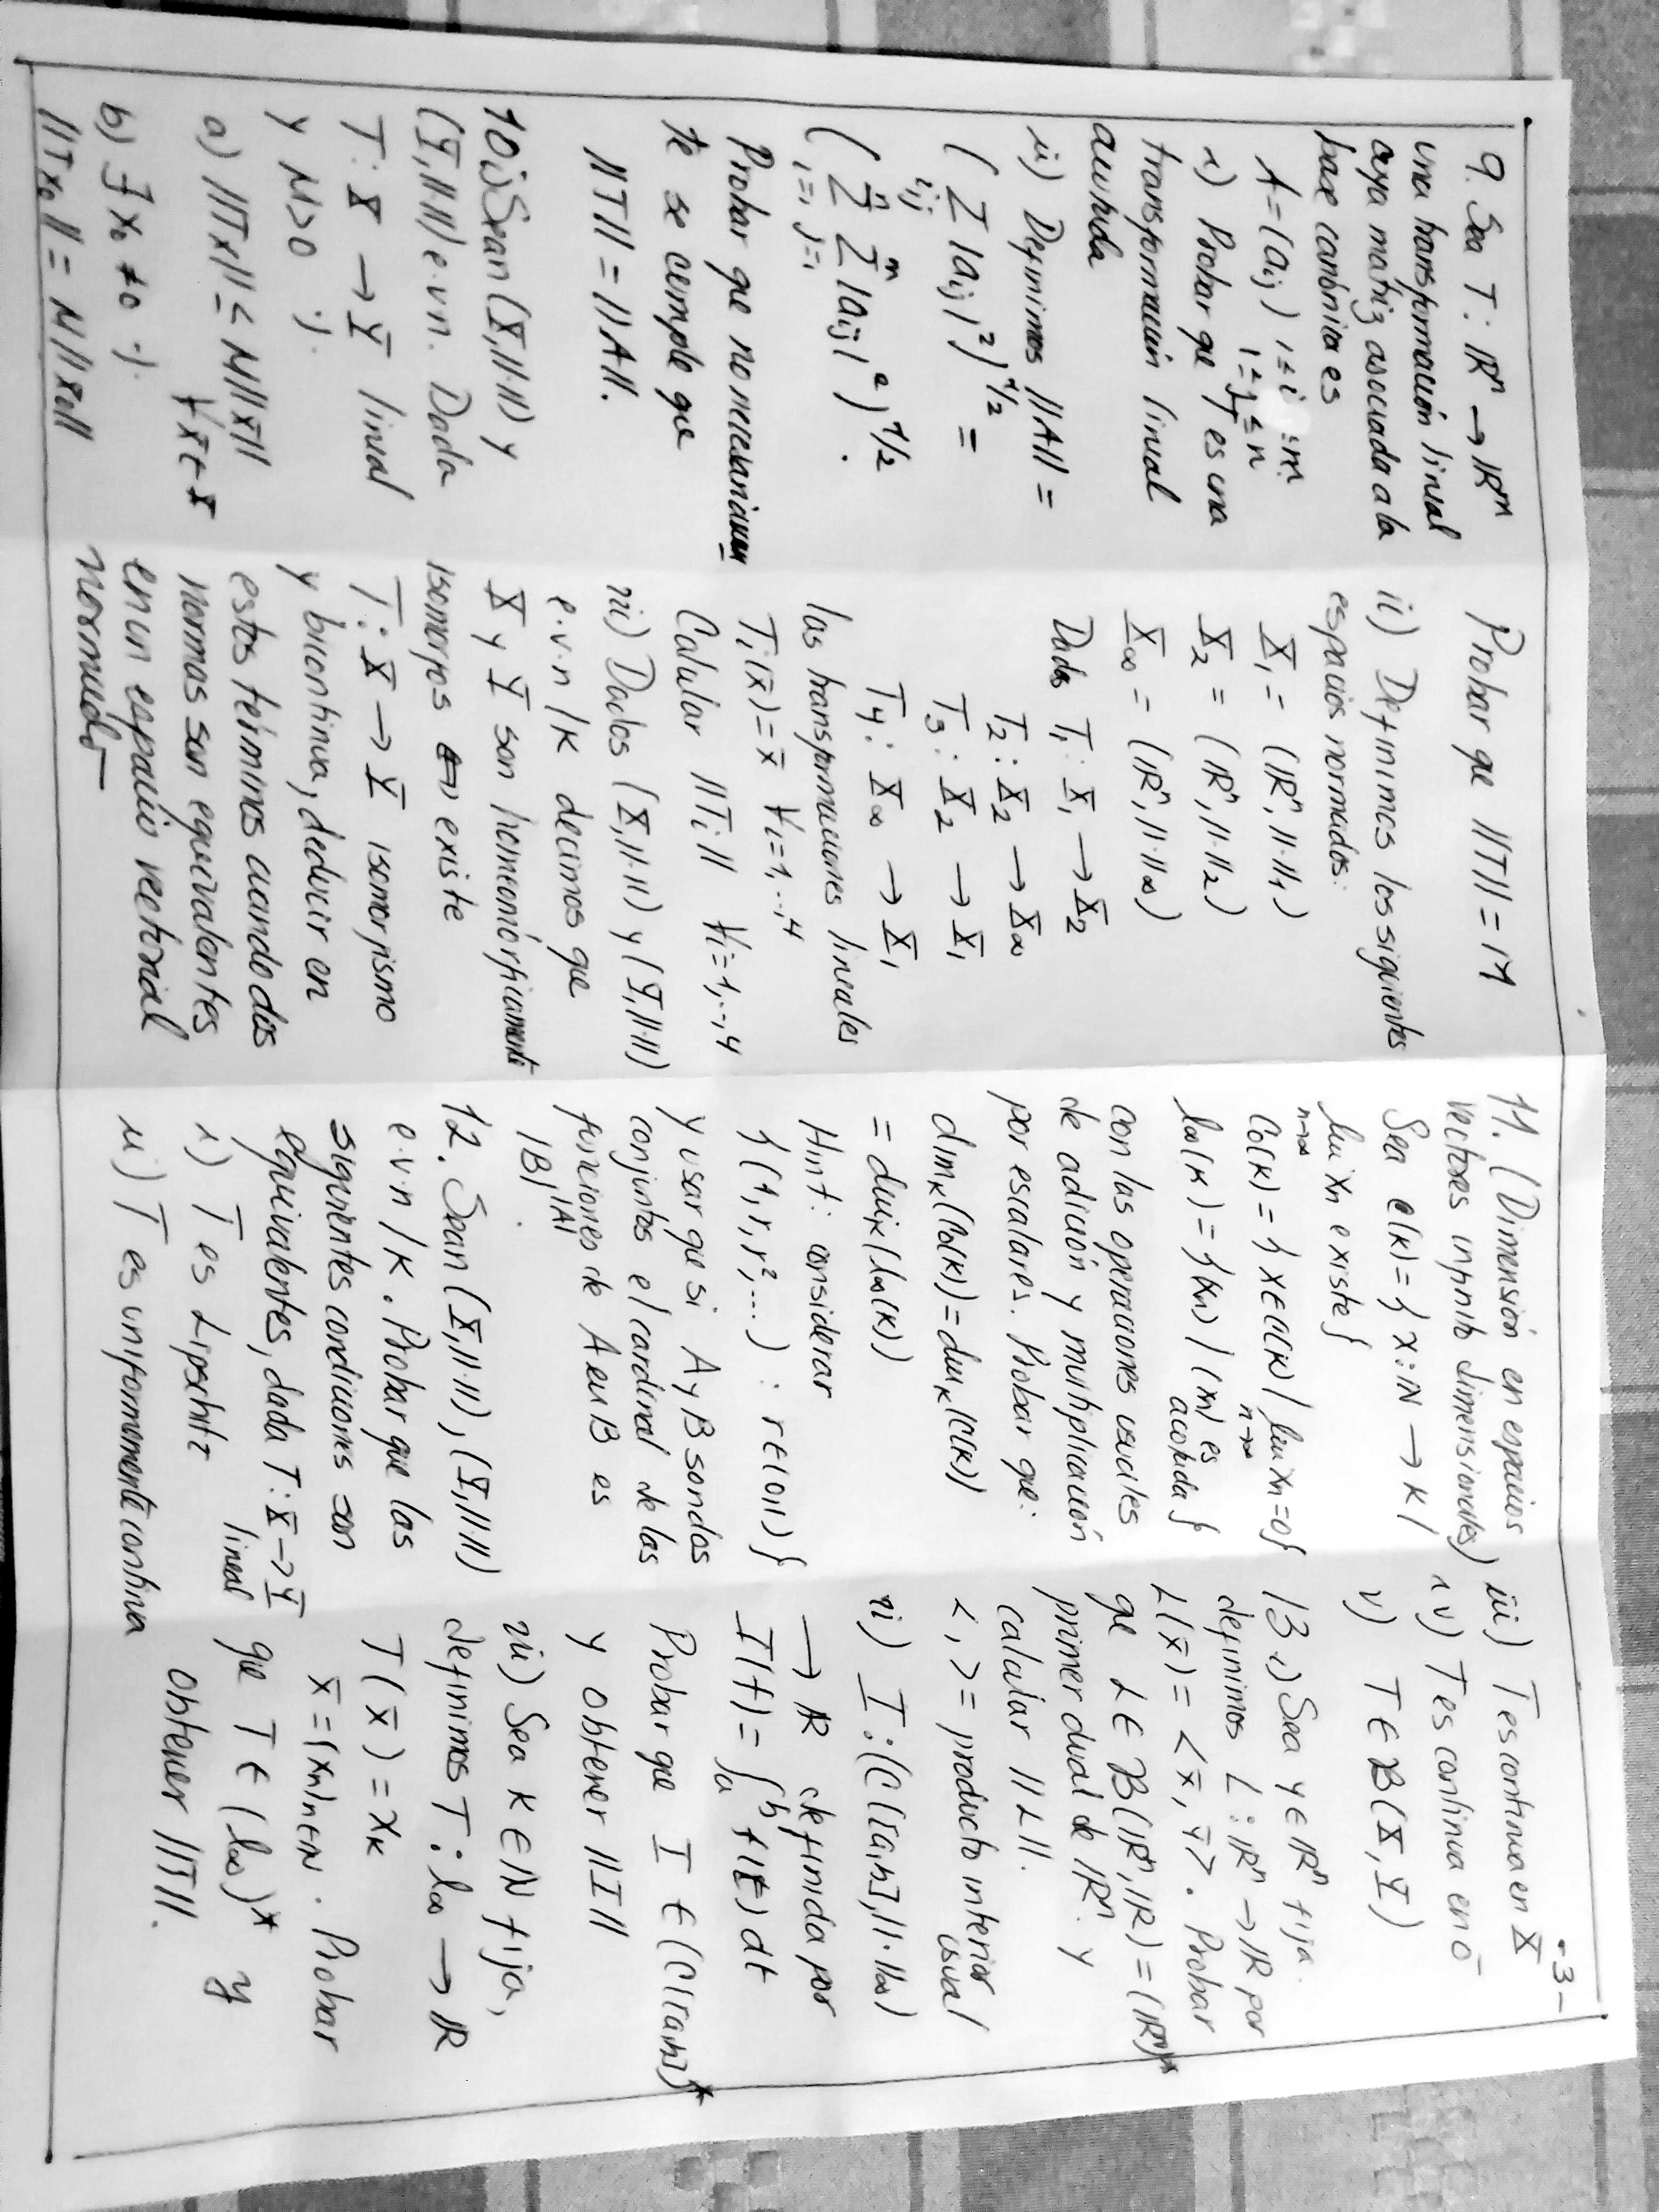 -3-
9. Sea T: ℝⁿ → ℝᵐ
una transformación lineal
cuya matriz asociada a la
base canónica es
A = (aᵢⱼ) 1≤i≤m
1≤j≤n
i) Probar que T es una
transformación lineal
acotada
ii) Definimos ||A|| =
( Σ |aᵢⱼ|²)^1/2 =
i,j
( Σ Σ |aᵢⱼ|²)^1/2 .
i=1 j=1
n m
Probar que no necesariamen
te se cumple que
||T|| = ||A||.
10 i) Sean (X, ||·||) y
(Y, ||·||) e.v.n. Dada
T: X → Y lineal
y M>0 ·/·
a) ||Tx̄|| ≤ M||x̄||
∀x̄∈X
b) ∃x₀ ≠ 0 ·/·
||Tx₀|| = M||x₀||
Probar que ||T|| = M
ii) Definimos los siguientes
espacios normados:
X₁ = (ℝⁿ, ||·||₁)
X₂ = (ℝⁿ, ||·||₂)
X∞ = (ℝⁿ, ||·||∞)
Dadas T₁: X₁ → X₂
T₂: X₂ → X∞
T₃: X₂ → X₁
T₄: X∞ → X₁
las transformaciones lineales
Tᵢ(x̄) = x̄ ∀i=1,..,4
Calcular ||Tᵢ|| ∀i=1,..,4
iii) Dados (X, ||·||) y (Y, ||·||)
e.v.n /K decimos que
X y Y son homeomórficamente
isomorfos ⇔ existe
T: X → Y isomorfismo
y bicontinua, deducir en
estos términos cuando dos
normas son equivalentes
en un espacio vectorial
normado
11. (Dimensión en espacios
vectores infinito dimensionales)
Sea c(K) = { x: N → K /
lim xₙ existe}
n→∞
C₀(K) = { x∈c(K) / lim xₙ = 0}
n→∞
l∞(K) = {(xₙ) / (xₙ) es
acotada}
con las operaciones usuales
de adición y multiplicación
por escalares. Probar que:
dimₖ(C₀(K)) = dimₖ(C(K))
= dimₖ(l∞(K))
Hint: considerar
{(1, r, r², ...) : r∈(0,1)}
y usar que si A y B son dos
conjuntos el cardinal de las
funciones de A en B es
|B|^|A| .
12. Sean (X, ||·||), (Y, ||·||)
e.v.n /K. Probar que las
siguientes condiciones son
equivalentes, dada T: X → Y
lineal
i) T es Lipschitz
ii) T es uniformemente continua
iii) T es continua en X
iv) T es continua en 0̄
v) T ∈ B(X, Y)
13 i) Sea y ∈ ℝⁿ fija.
definimos L: ℝⁿ → ℝ por
L(x̄) = <x̄, ȳ>. Probar
que L∈ B(ℝⁿ, ℝ) = (ℝⁿ)*
primer dual de ℝⁿ. y
calcular ||L||.
<,> = producto interior
usual
ii) I: (C([a,b], ||·||∞)
→ ℝ definida por
I(f) = ∫ₐᵇ f(t) dt
Probar que I ∈ (C([a,b])*
y obtener ||I||
iii) Sea K ∈ N fija,
definimos T: l∞ → ℝ
T(x̄) = xₖ
x̄ = (xₙ)ₙ∈N . Probar
que T ∈ (l∞)* y
obtener ||T||.